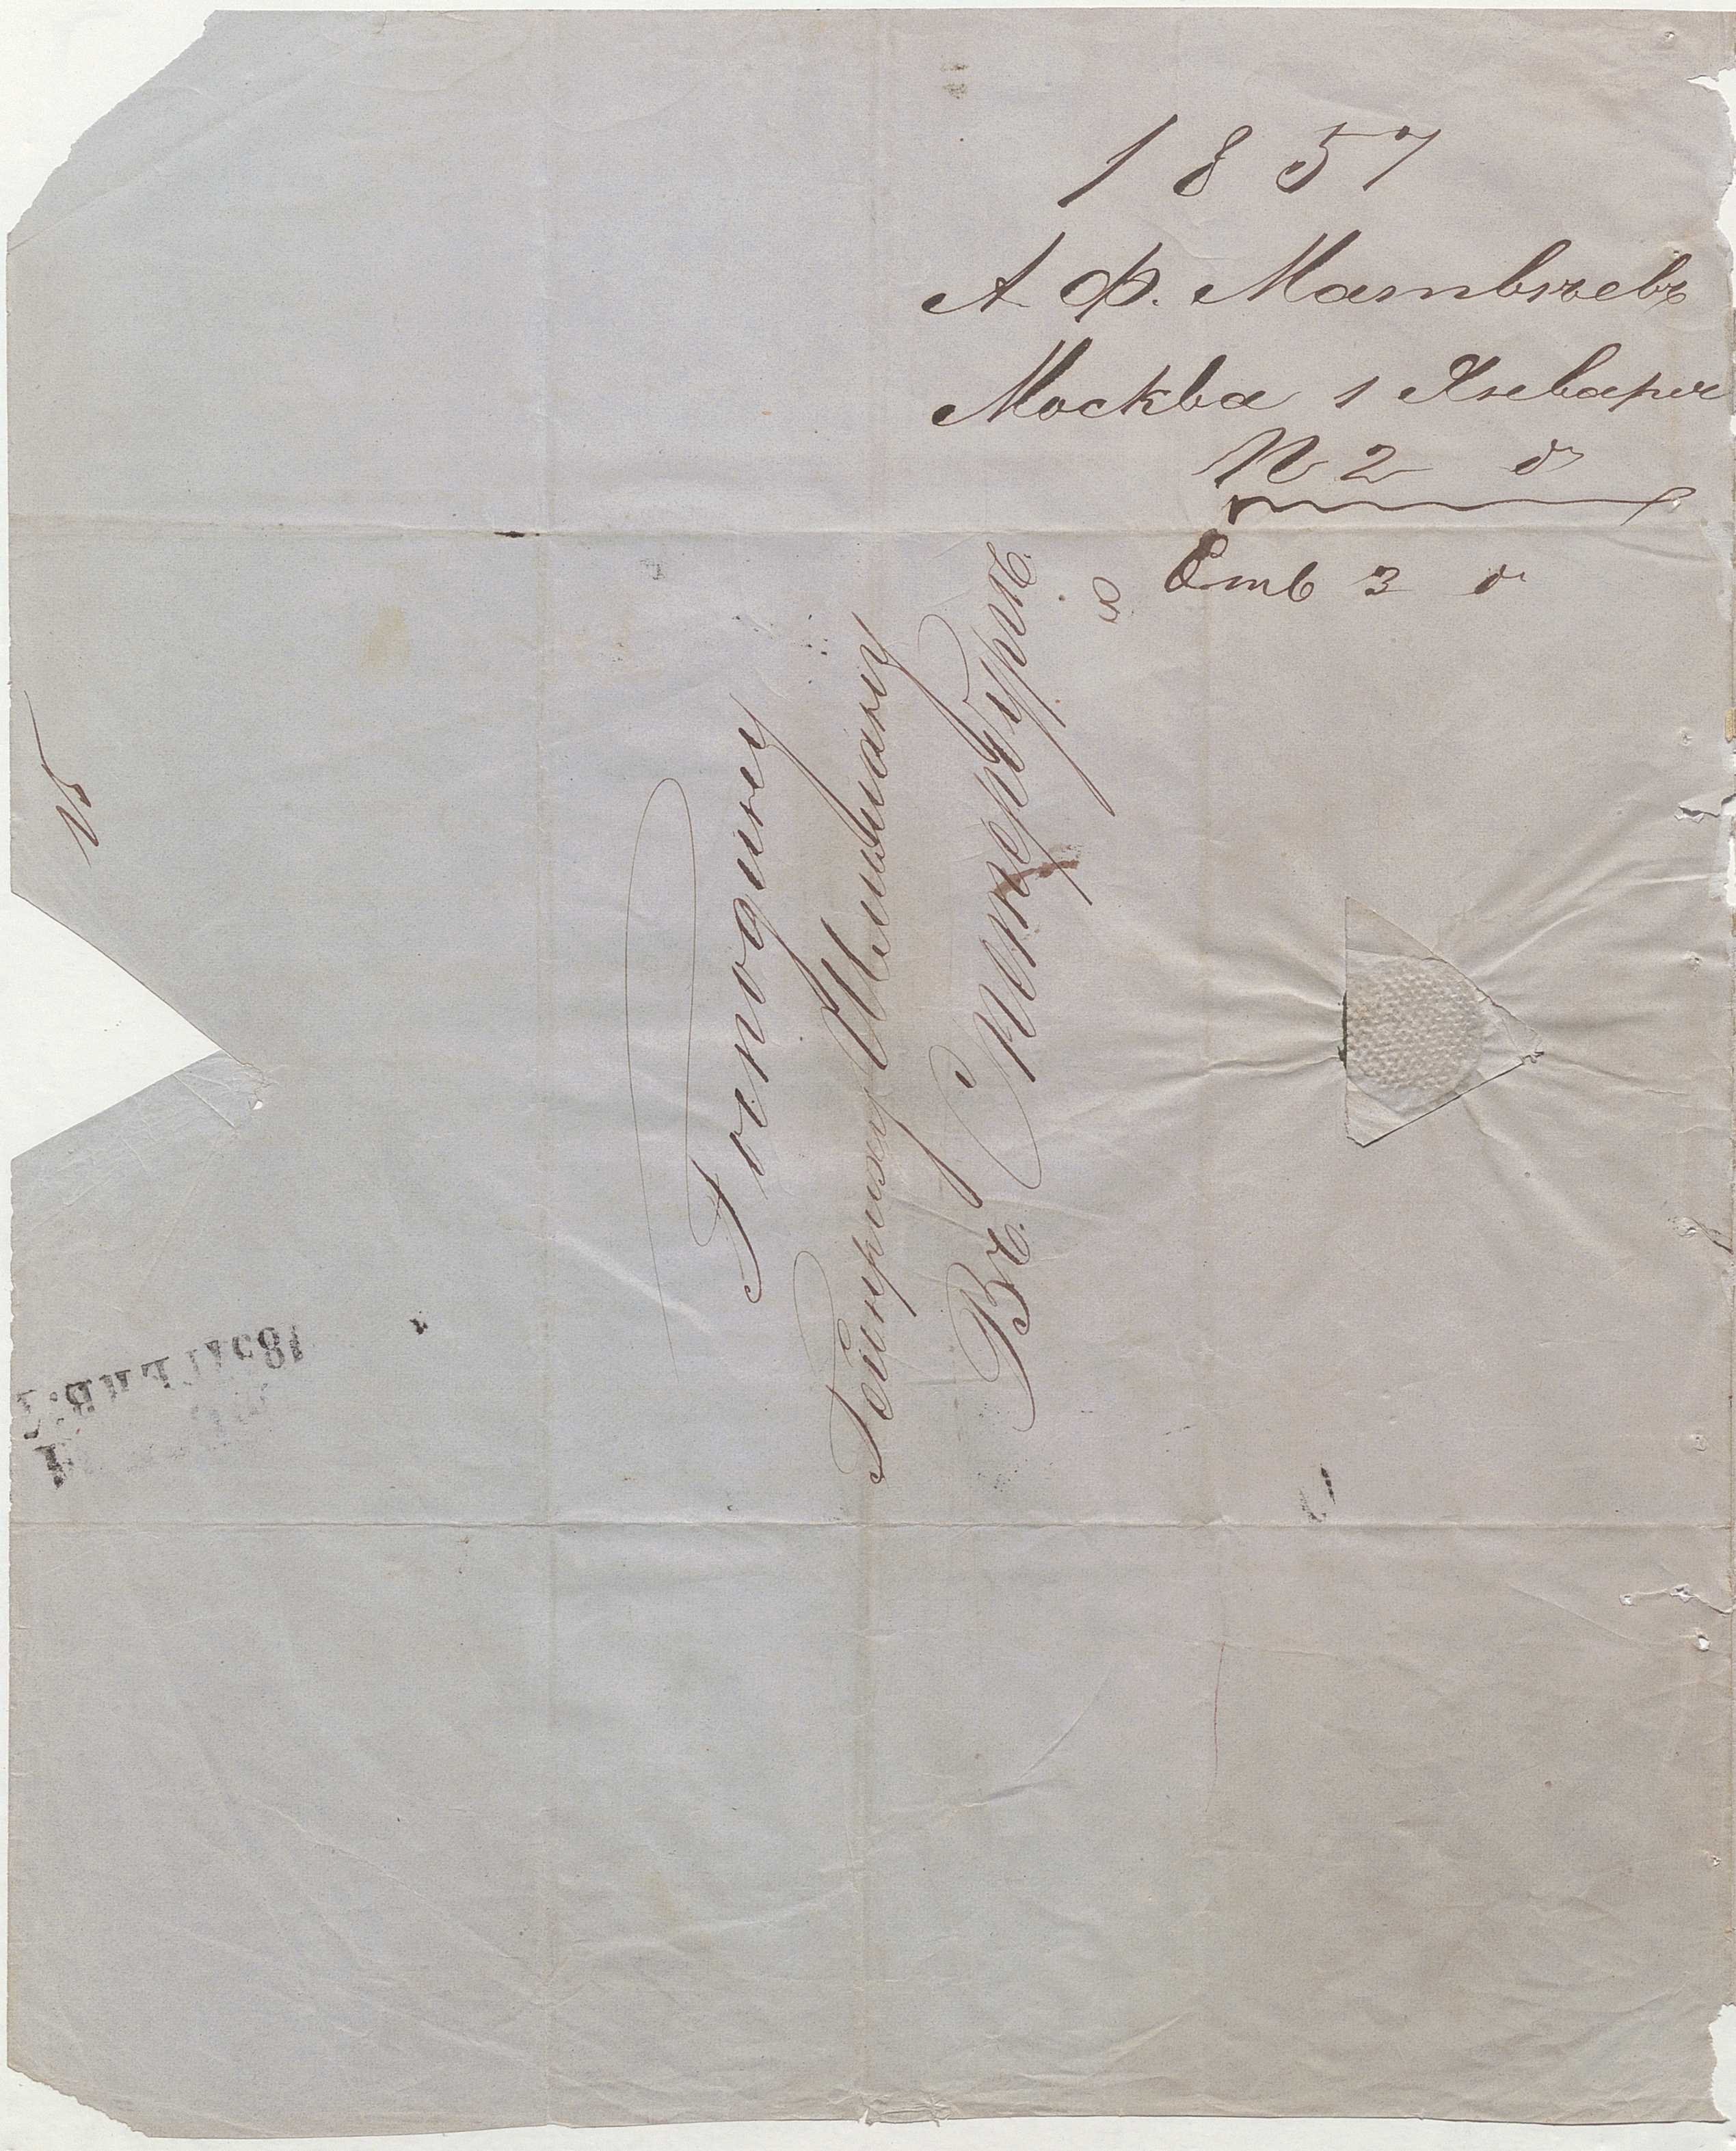 1857
А Ф. Матвѣевъ
Москва 1 Января
П 2 д
Отв 3 д
Господину
Генриху Шлиману
Въ С Петербургѣ.